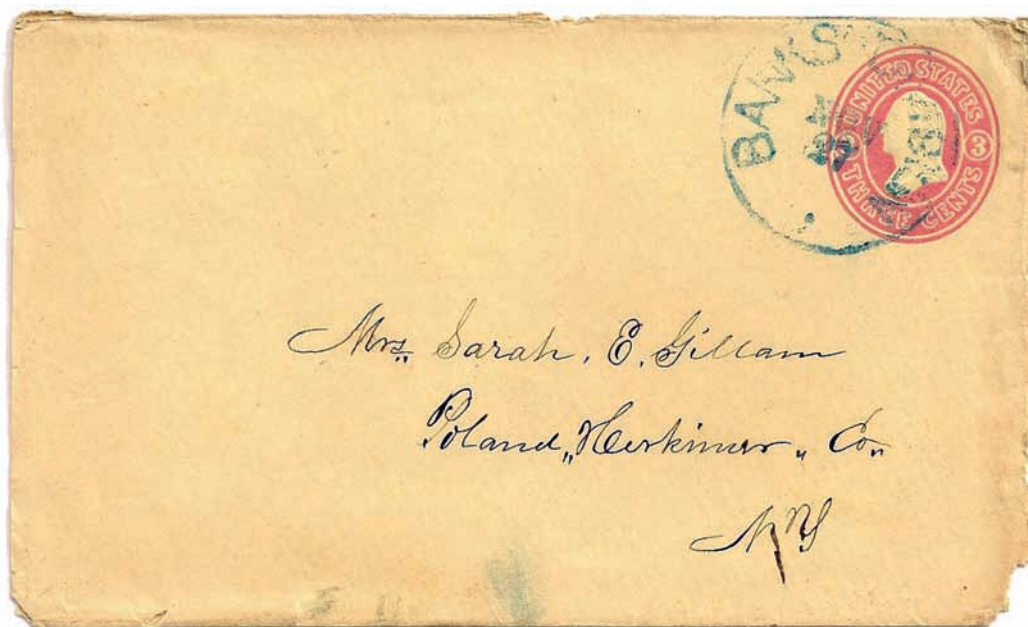 BANKS
UNITED STATES
3 3
THREE CENTS
Mrs. Sarah. E. Gillam
Poland, Herkimer. Co.
N Y